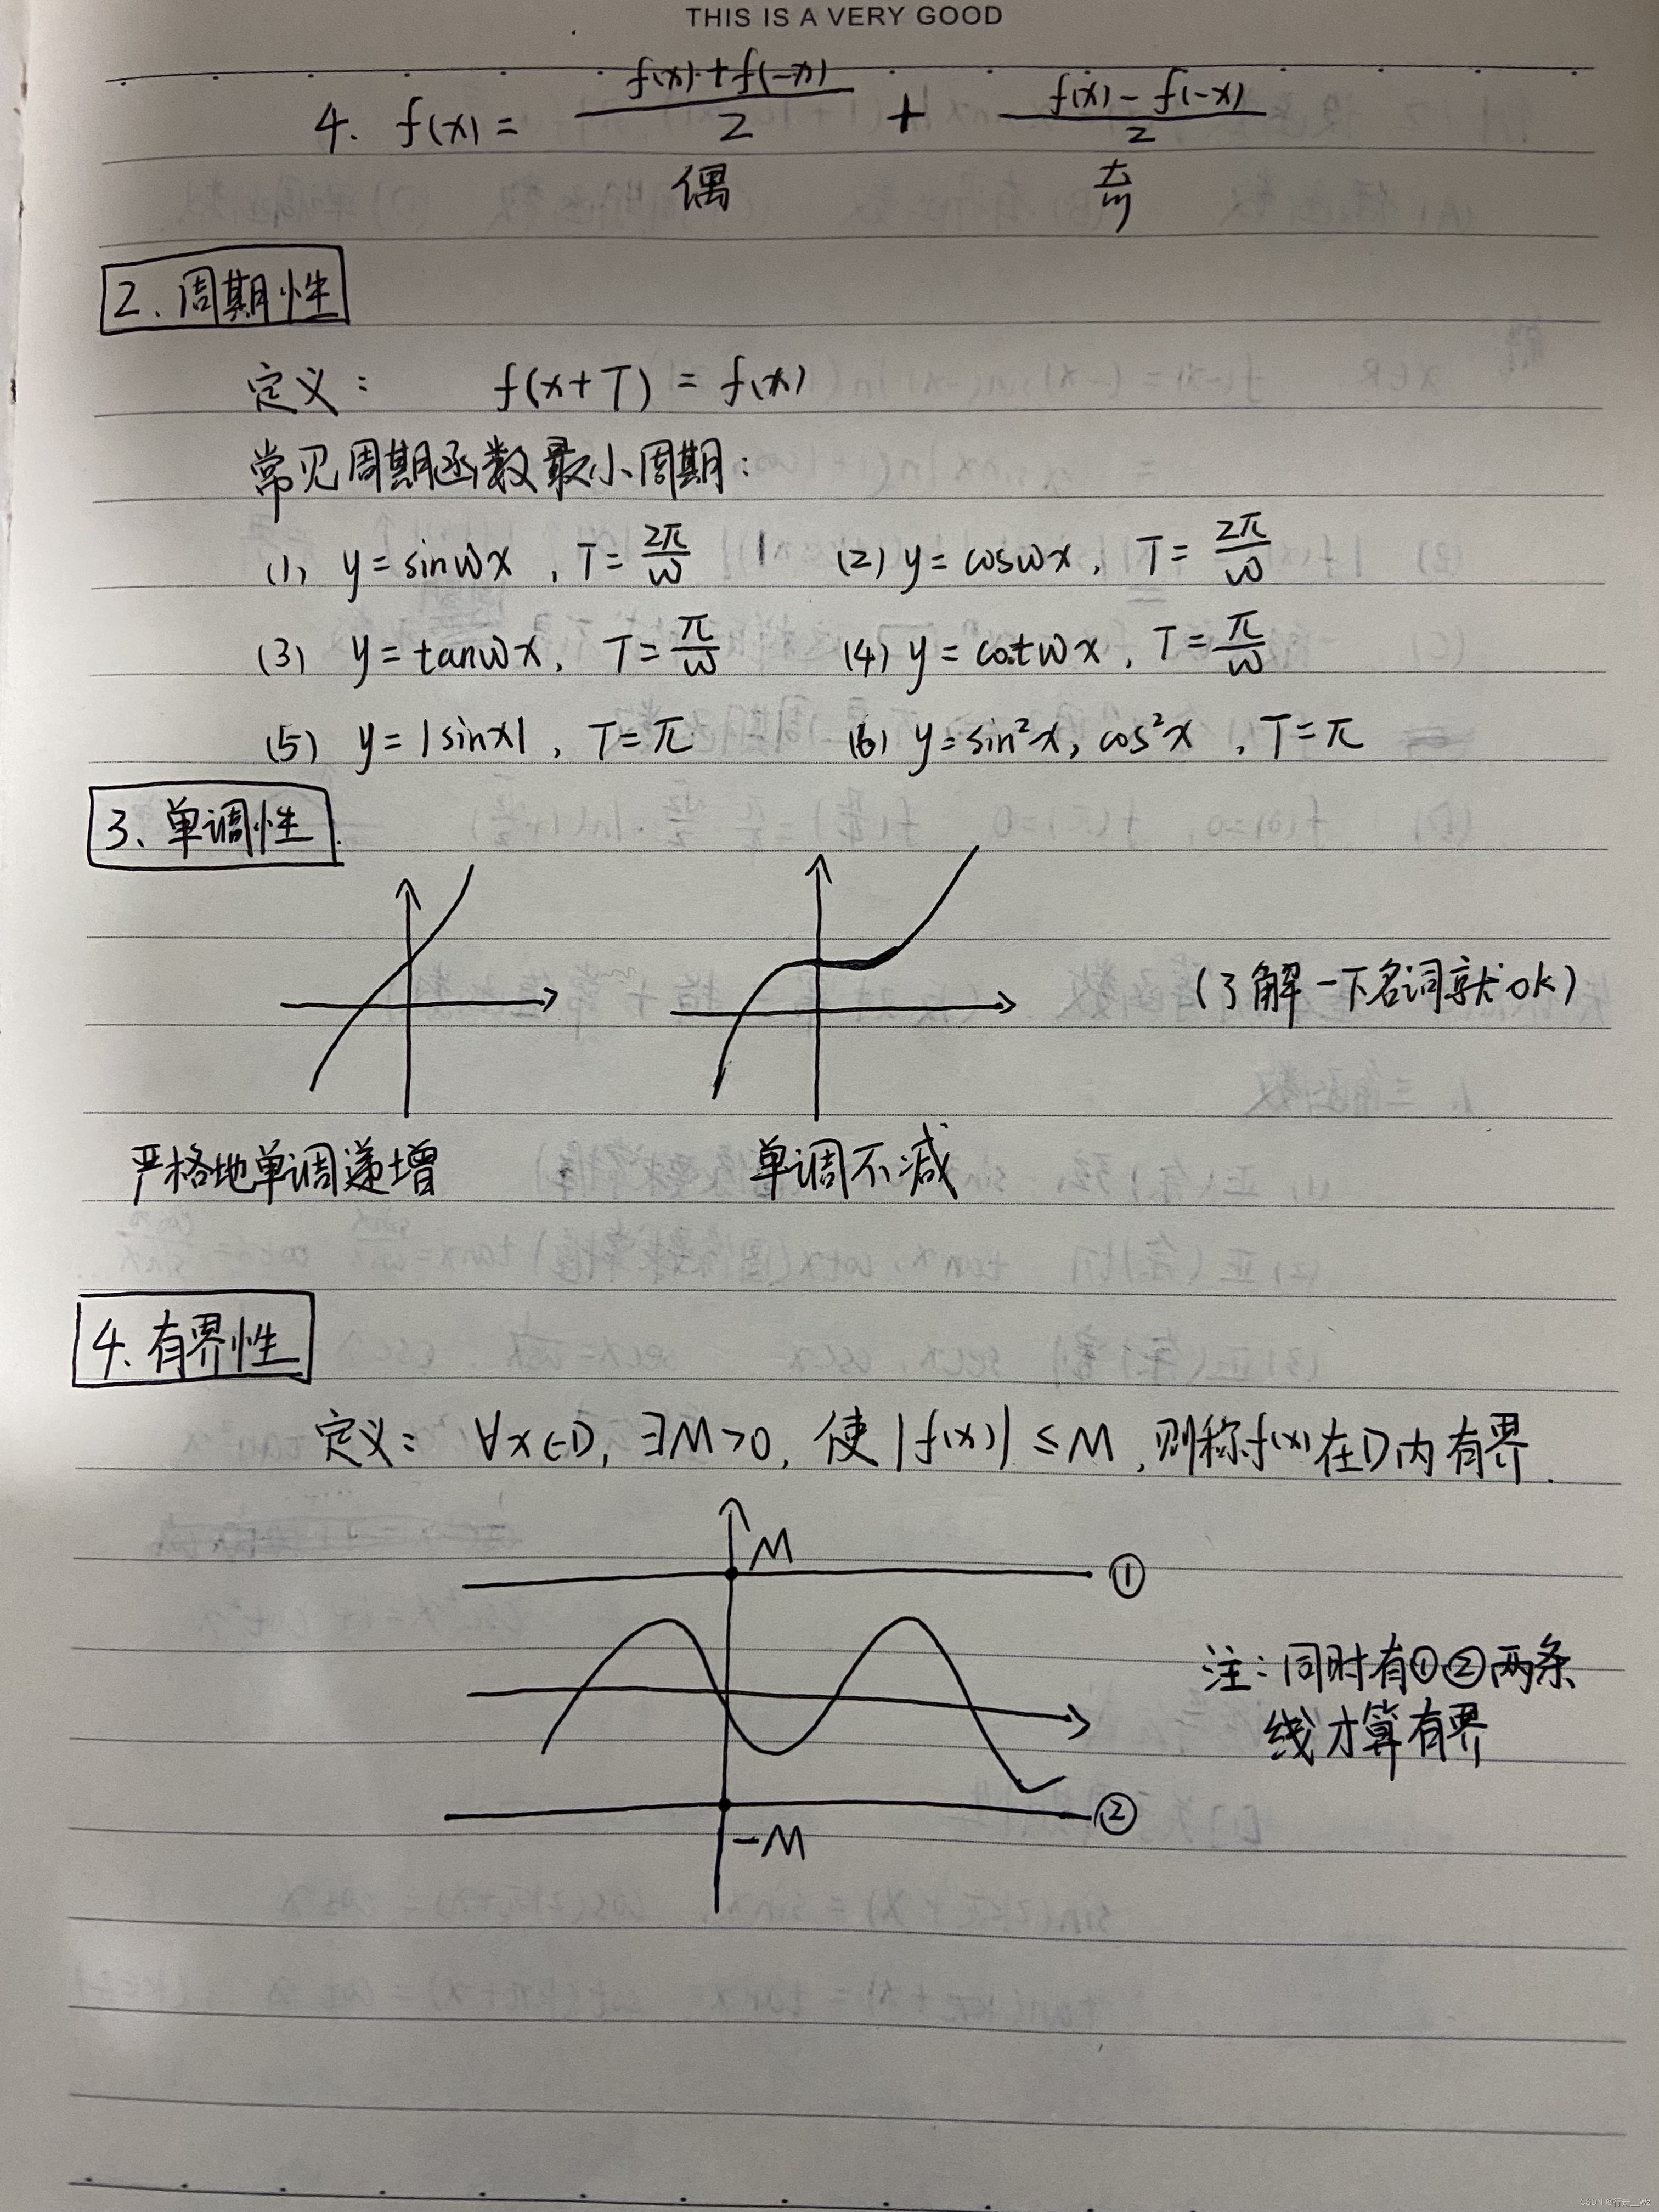 THIS IS A VERY GOOD
4. f(x) = (f(x)+f(-x))/2 + (f(x)-f(-x))/2
偶 奇
2. 周期性
定义: f(x+T) = f(x)
常见周期函数最小周期:
(1) y=sinωx, T=2π/ω (2) y=cosωx, T=2π/ω
(3) y=tanωx, T=π/ω (4) y=cotωx, T=π/ω
(5) y=|sinx|, T=π (6) y=sin²x, cos²x, T=π
3、单调性
(了解一下名词就ok)
严格地单调递增 单调不减
4. 有界性
定义: ∀x∈D, ∃M>0, 使|f(x)|≤M, 则称f(x)在D内有界.
M
①
注: 同时有①②两条
线才算有界
②
-M
CSDN @行走__Wz